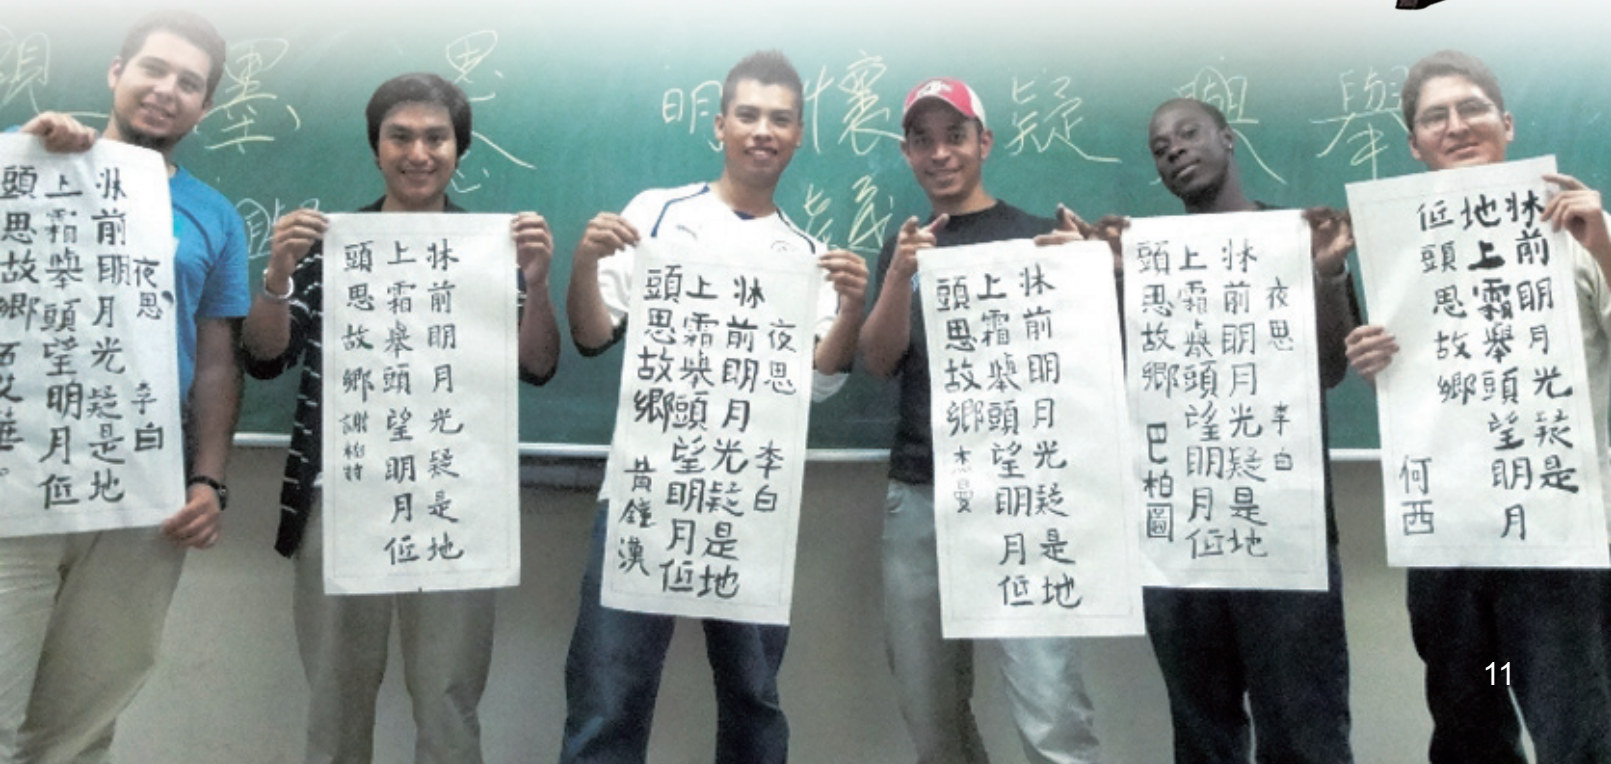 墨 思 明 懷 疑 與 舉
義
夜思 李白
牀前明月光疑是地
上霜舉頭望明月低
頭思故鄉 華。
牀前明月光疑是地
上霜舉頭望明月低
頭思故鄉 謝
夜思 李白
牀前明月光疑是地
上霜舉頭望明月低
頭思故鄉 黃鐘漢
牀前明月光疑是地
上霜舉頭望明月低
頭思故鄉 杰曼
夜思 李白
牀前明月光疑是地
上霜舉頭望明月低
頭思故鄉 巴柏圖
牀前明月光疑是
地上霜舉頭望明月
低頭思故鄉
何西
11